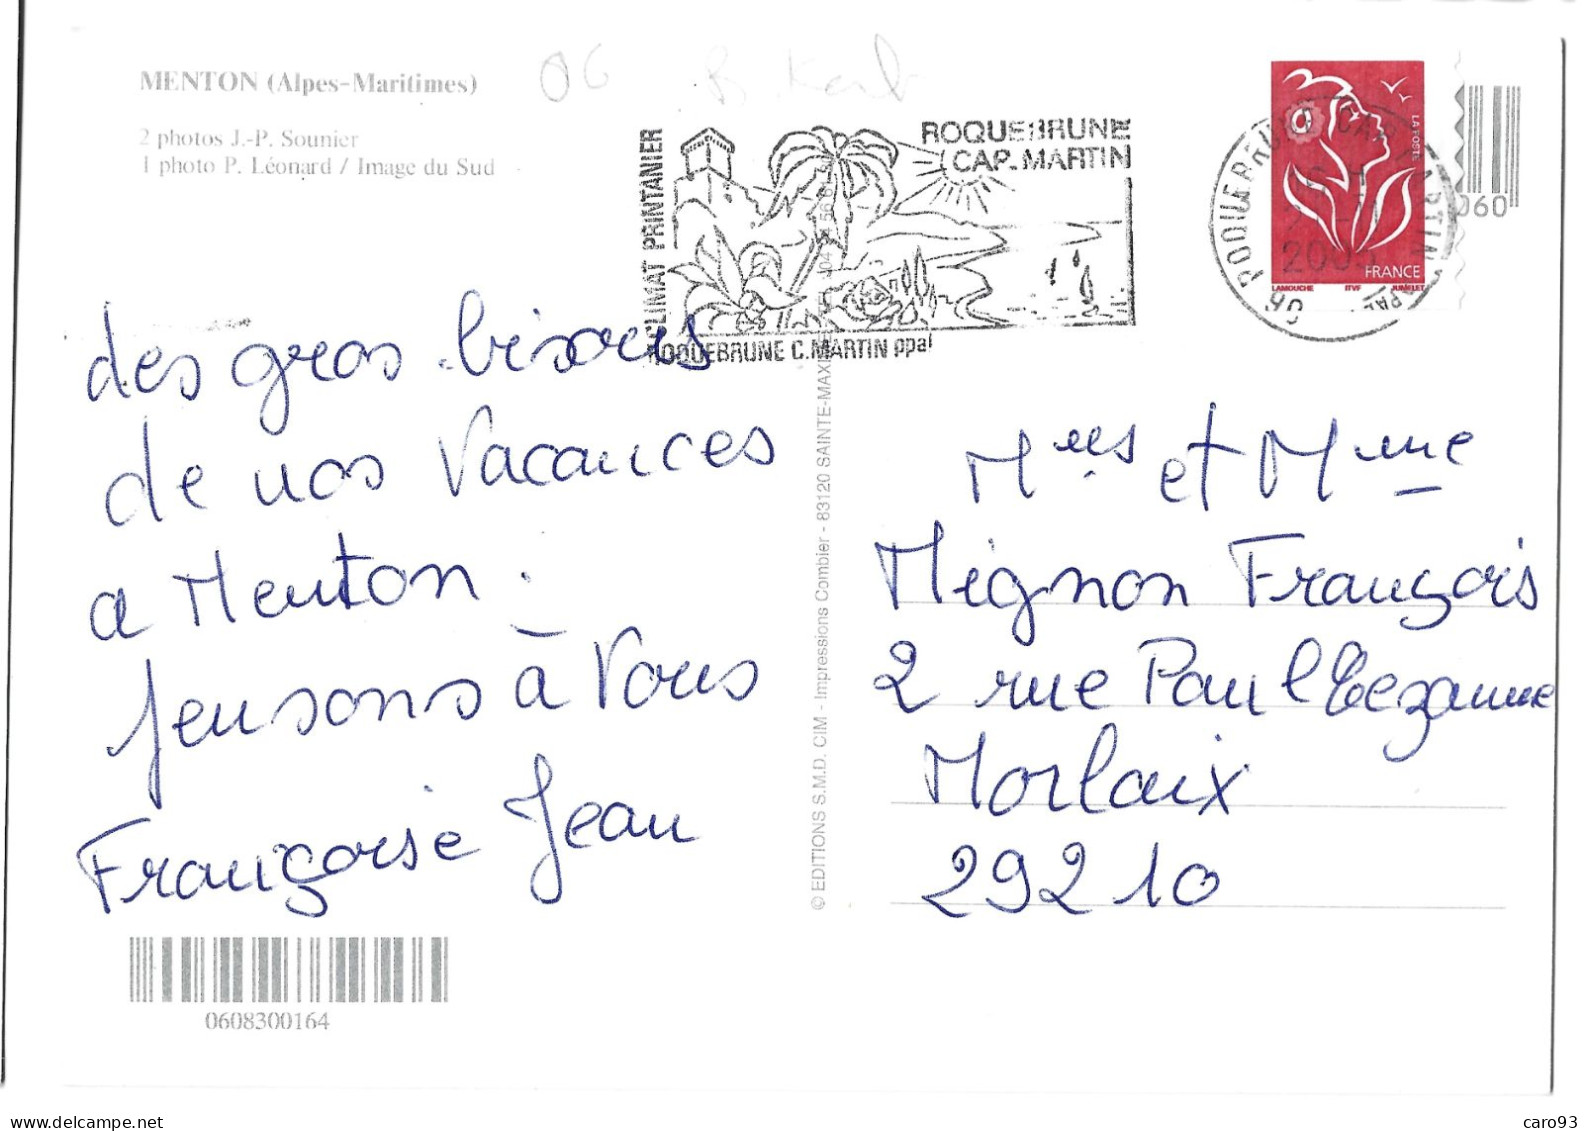 MENTON (Alpes-Maritimes)
2 photos J.-P. Sounier
1 photo P. Léonard / Image du Sud
06
CLIMAT PRINTANIER
ROQUEBRUNE
CAP. MARTIN
ROQUEBRUNE C.MARTIN ppal
LA POSTE
FRANCE
LAMOUCHE ITVF JUMELET
060
des gros bisous
de nos Vacances
a Menton.
pensons à Vous
Françoise Jean
0608300164
© EDITIONS S.M.D. CIM - Impressions Combier - 83120 SAINTE-MAXIME
Mrs et Mme
Mignon François
2 rue Paul Cezanne
Morlaix
29210
www.delcampe.net
caro93